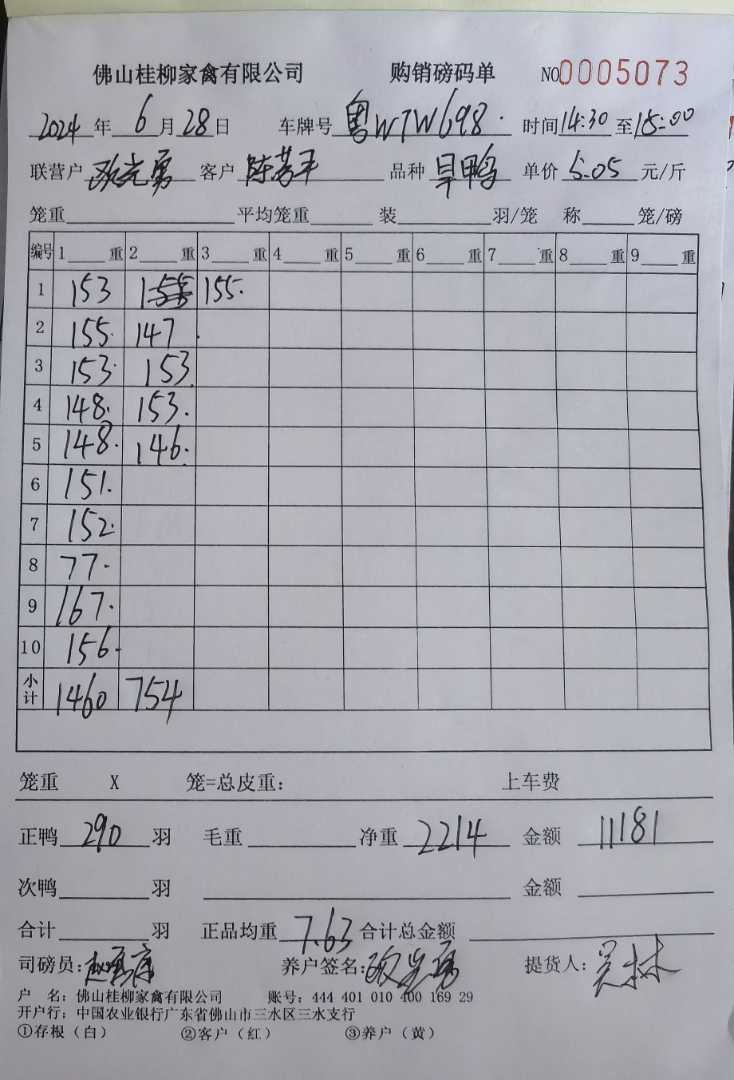 佛山桂柳家禽有限公司 购销磅码单 NO0005073
2024年6月28日 车牌号 粤W7W698 时间14:30至15:00
联营户 欧光勇 客户 陈芳平 品种 旱鸭 单价 5.05 元/斤
笼重 平均笼重 装 羽/笼 称 笼/磅
编号 1 重 2 重 3 重 4 重 5 重 6 重 7 重 8 重 9 重
1 153 155.
2 155. 147
3 153. 153
4 148. 153.
5 148. 146.
6 151.
7 152.
8 77.
9 167.
10 156.
小计 1460 754
笼重 X 笼=总皮重: 上车费
正鸭 290 羽 毛重 净重 2214 金额 11181
次鸭 羽 金额
合计 羽 正品均重 7.63 合计总金额
司磅员: 养户签名:欧光勇 提货人:吴林
户 名: 佛山桂柳家禽有限公司 账号: 444 401 010 400 169 29
开户行: 中国农业银行广东省佛山市三水区三水支行
①存根（白） ②客户（红） ③养户（黄）